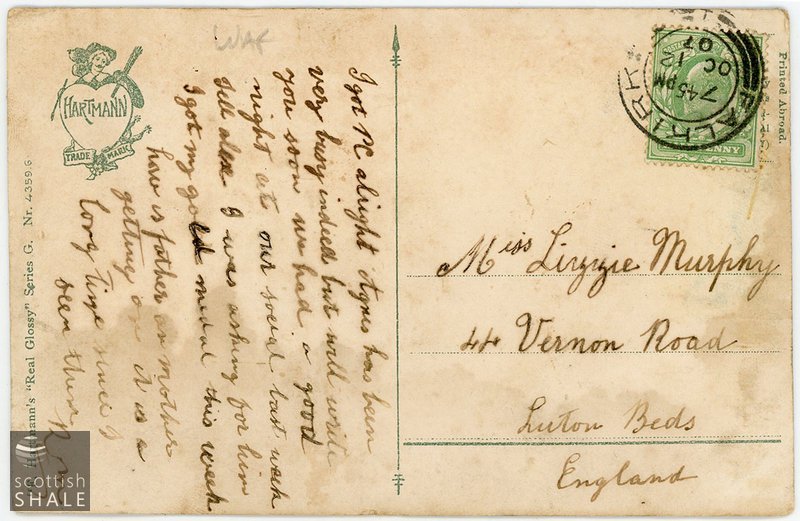 WAF
HARTMANN
TRADE MARK
Hartmann's "Real Glossy" Series G. Nr. 4359.6
I got PC alright Agnes has been
very busy indeed but will write
you soon we had a good
night at our social last week
tell alex I was asking for him
I got my gold medal this week
how is father an mother
getting on it is a
long time since I
seen them
Printed Abroad.
FALKIRK
7 45 PM
OC 12
07
PENNY
Miss Lizzie Murphy
44 Vernon Road
Luton Beds
England
scottish
SHALE